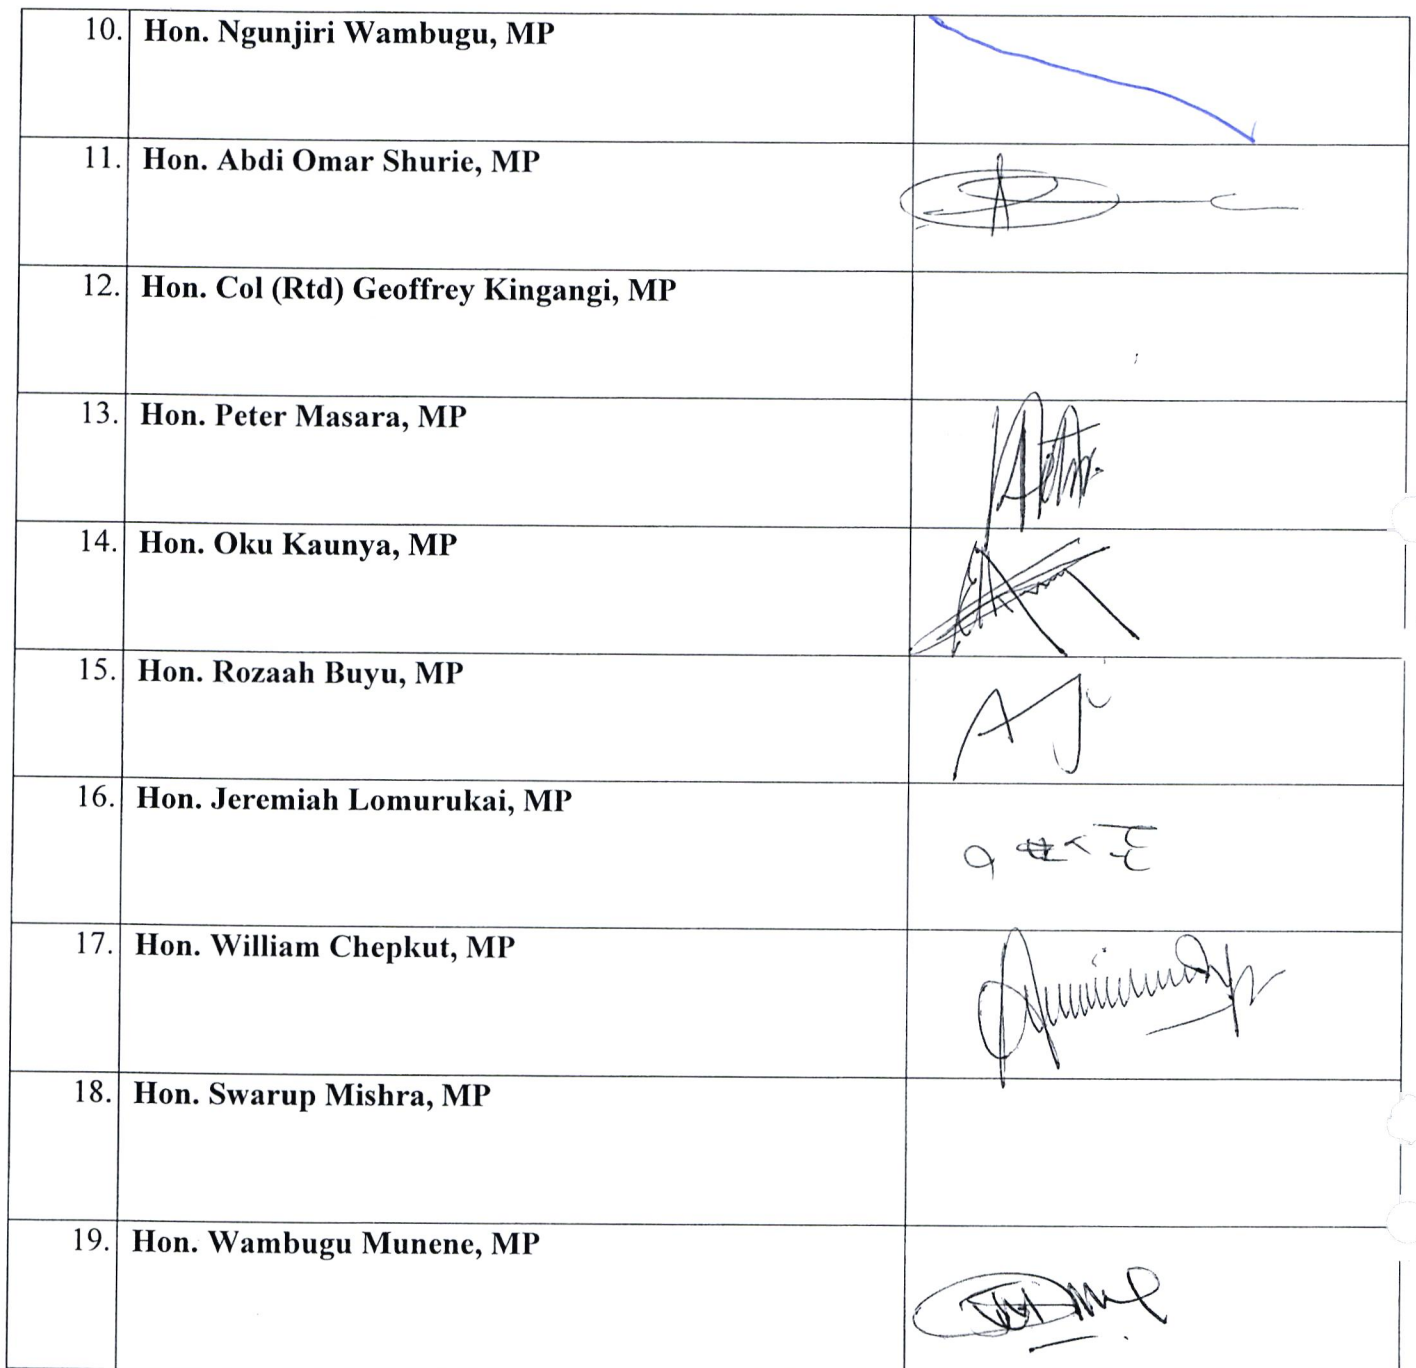 10. Hon. Ngunjiri Wambugu, MP
11. Hon. Abdi Omar Shurie, MP
12. Hon. Col (Rtd) Geoffrey Kingangi, MP
13. Hon. Peter Masara, MP
14. Hon. Oku Kaunya, MP
15. Hon. Rozaah Buyu, MP
16. Hon. Jeremiah Lomurukai, MP
17. Hon. William Chepkut, MP
18. Hon. Swarup Mishra, MP
19. Hon. Wambugu Munene, MP